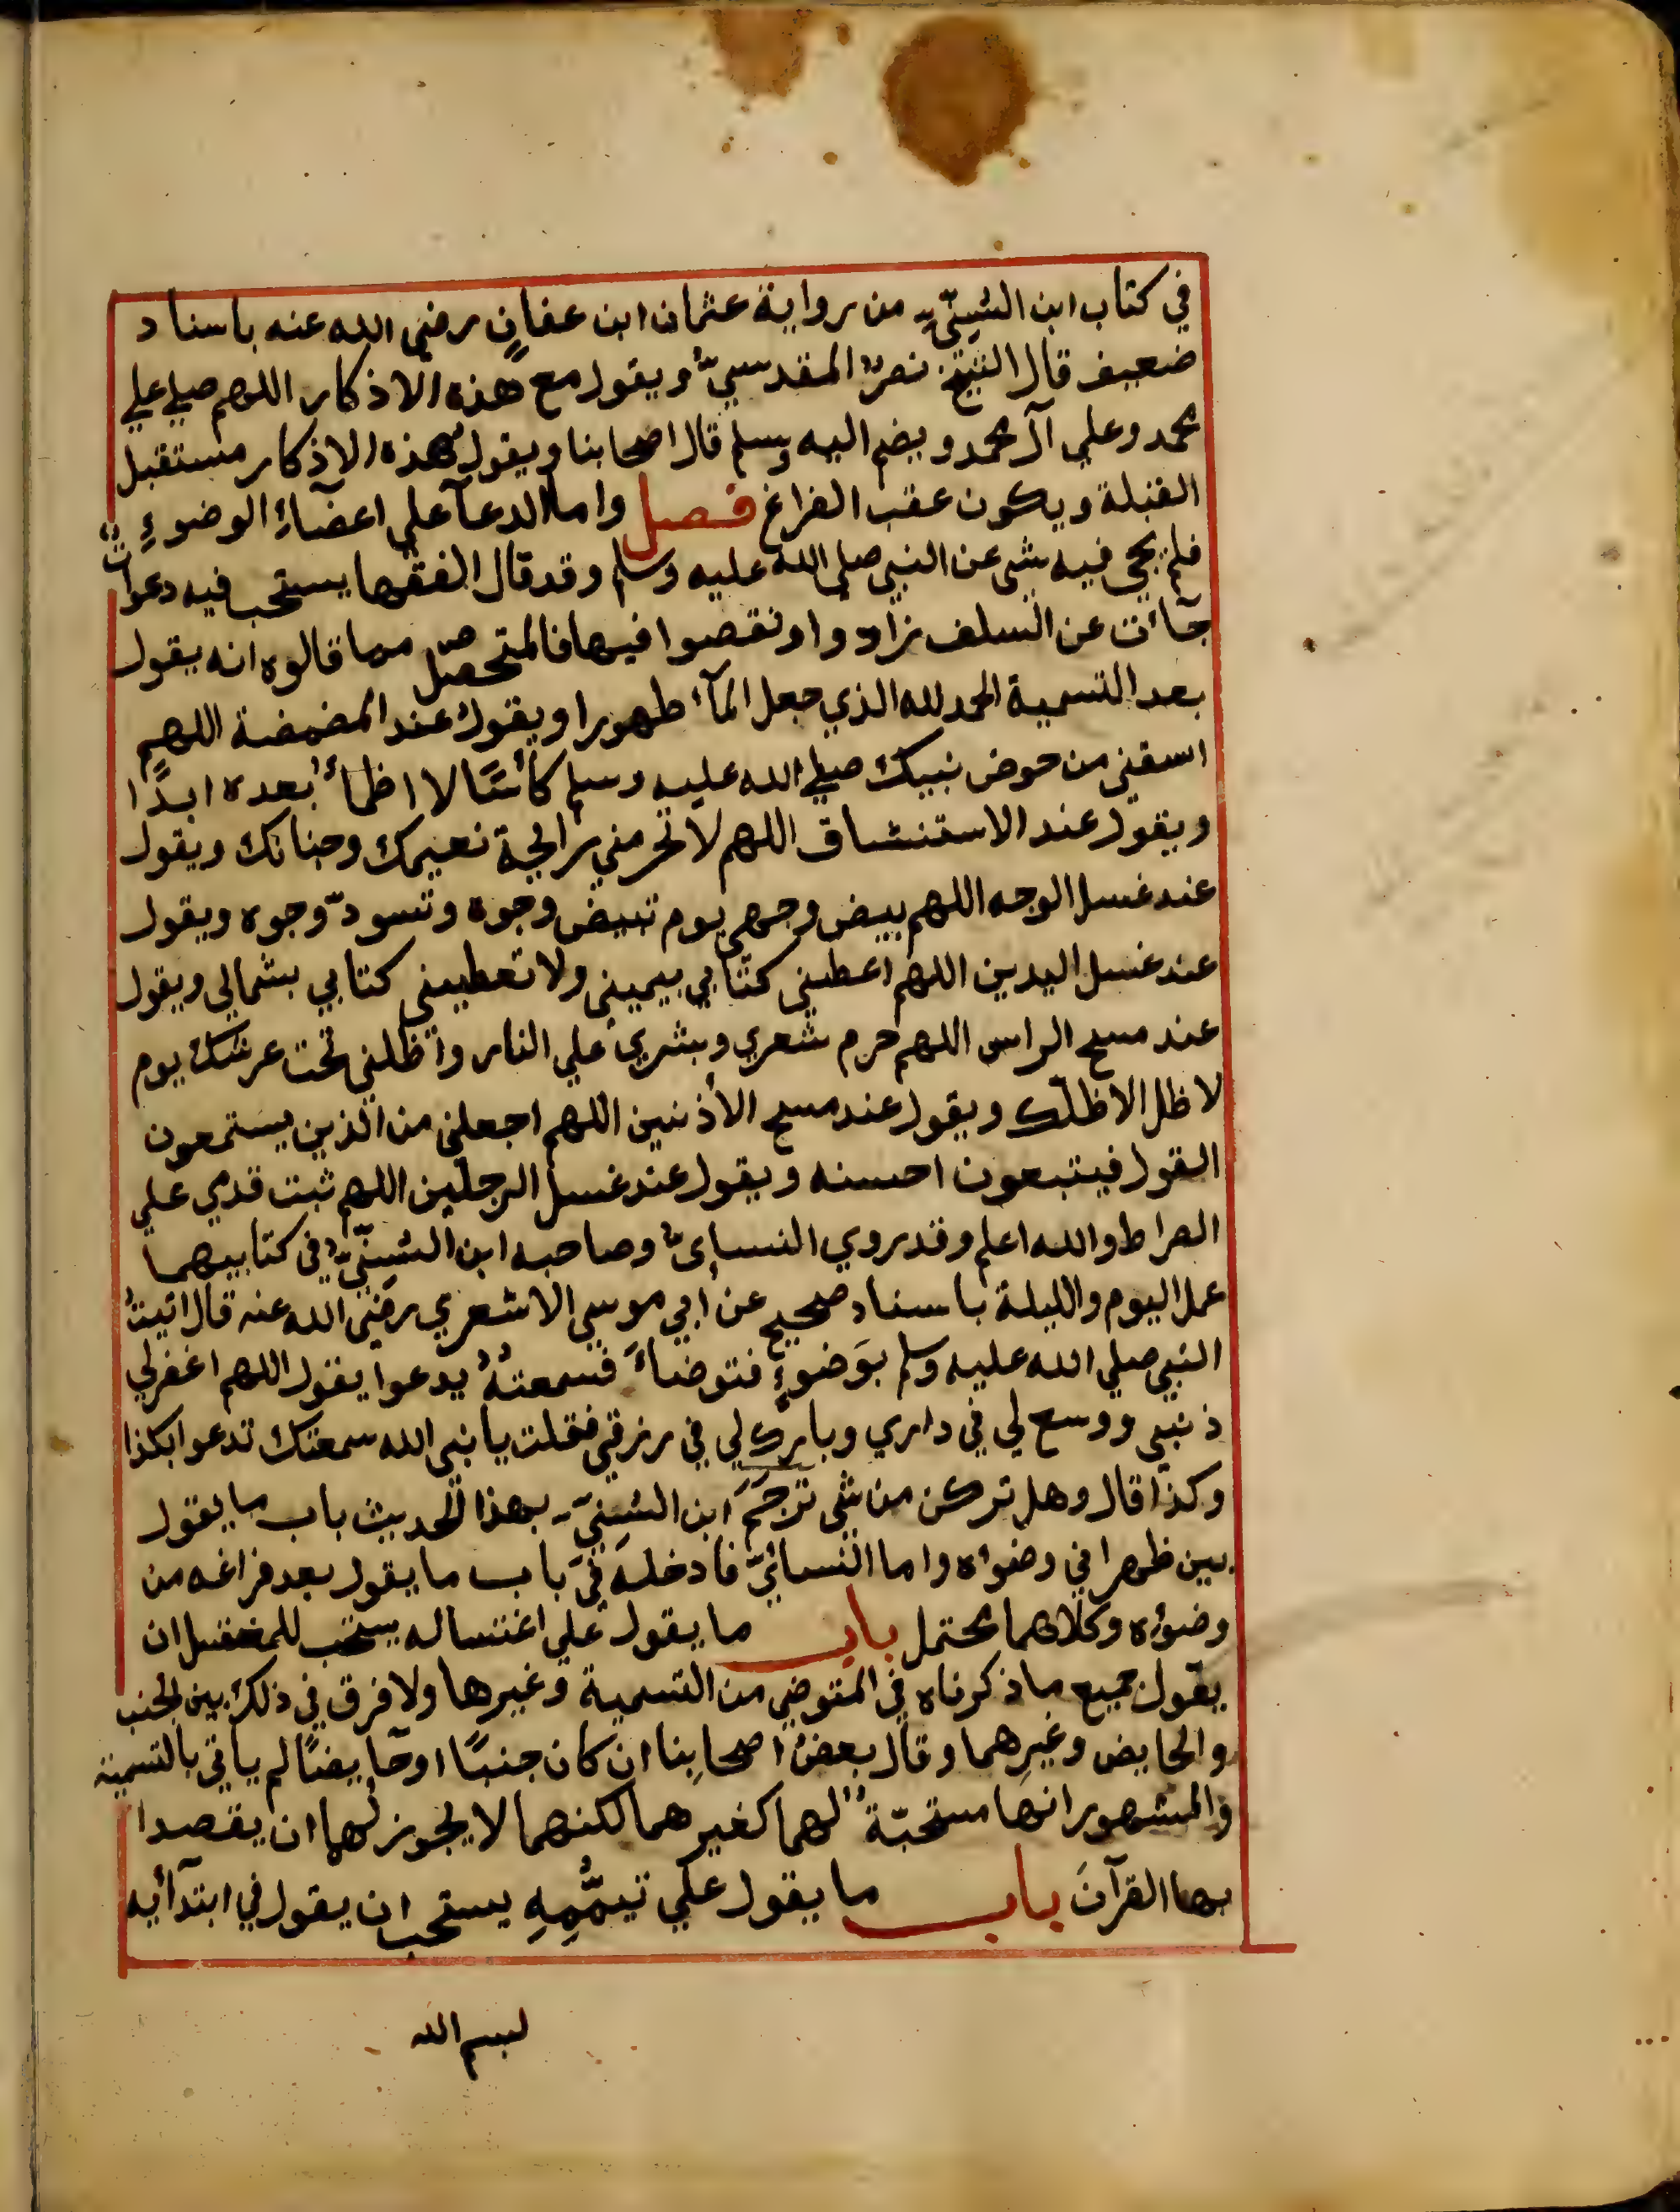 في كتاب ابن السُنِيّ من رواية عثمان ابن عفانٍ رضي الله عنه باسناد
ضعيف قال الشيخ نصرٌ المقدسيّ ويقول مع هذه الاذكار اللهم صلي علي
محمد وعلي آل محمد ويضم اليه وسلم قال اصحابنا ويقول هذه الاذكار مستقبل
القبلة ويكون عقب الفراغ فصل واما الدعآ علي اعضآءِ الوضوءِ
فلم يجي فيه شي عن النبي صلي الله عليه وسلم وقد قال الفقها يستحب فيه دعواتٌ
جآءت عن السلف زادوا ونقصوا فيها فالمتحصل مما قالوه انه يقول
بعد التسمية الحمد لله الذي جعل المآءَ طهورا ويقول عند المضمضة اللهم
اسقني من حوض نبيك صلي الله عليه وسلم كأسًا لا اظمأ بعده ابدًا
ويقول عند الاستنشاق اللهم لا تحرمني رايحة نعيمك وجنانك ويقول
عند غسل الوجه اللهم بيض وجهي يوم تبيض وجوه وتسودّ وجوه ويقول
عند غسل اليدين اللهم اعطيني كتابي بيميني ولا تعطيني كتابي بشمالي ويقول
عند مسح الراس اللهم حرم شعري وبشري علي النار واظلني تحت عرشك يوم
لا ظل الا ظلك ويقول عند مسح الأذنين اللهم اجعلني من الذين يستمعون
القول فيتبعون احسنه ويقول عند غسل الرجلين اللهم ثبت قدمي علي
الصراط والله اعلم وقد روي النسايّ وصاحبه ابن السُنِّيّ في كتابيهما
عمل اليوم والليلة باسناد صحيح عن ابي موسي الاشعري رضي الله عنه قال اتيتُ
النبي صلي الله عليه وسلم بوَضوءٍ فتوضأَ فسمعتهُ يدعوا يقول اللهم اغفرلي
ذنبي ووسع لي في داري وبارك لي في رزقي فقلت يا نبي الله سمعتك تدعوا بكذا
وكذا قال وهل تركن من شي ترجَمَ ابن السُنِيّ بهذا الحديث باب ما يقول
بين ظهراني وضوءه واما النسائيّ فادخله في باب ما يقول بعد فراغه من
وضوءه وكلاهما محتمل باب ما يقول علي اغتساله يستحب للمغتسل ان
يقول جميع ما ذكرناه في المتوضي من التسمية وغيرها ولا فرق في ذلك بين الجنب
والحايض وغيرِهما وقال بعضُ اصحابِنا ان كان جنبًا او حآيضًا لم ياتي بالتسمية
والمشهور انها مستحبّة لهما كغيرهما لكنهما لا يجوز لهما ان يقصدا
بها القرآنَ باب ما يقول علي تيمُّمِهِ يستحب ان يقول في ابتدآئه
بسم الله